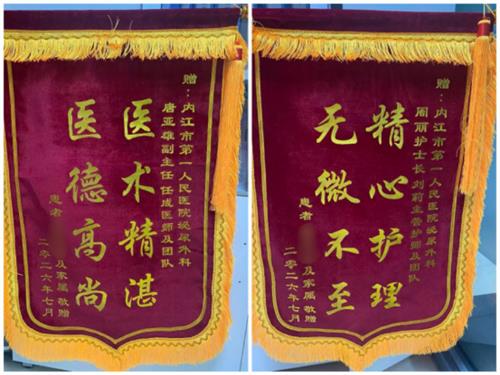 赠：内江市第一人民医院泌尿外科
唐亚雄副主任 任成医师及团队
医术精湛
医德高尚
患者
及家属 敬赠
二零二六年七月
赠：内江市第一人民医院泌尿外科
周丽护士长 刘莉主管护师及团队
精心护理
无微不至
患者
及家属 敬赠
二零二六年七月